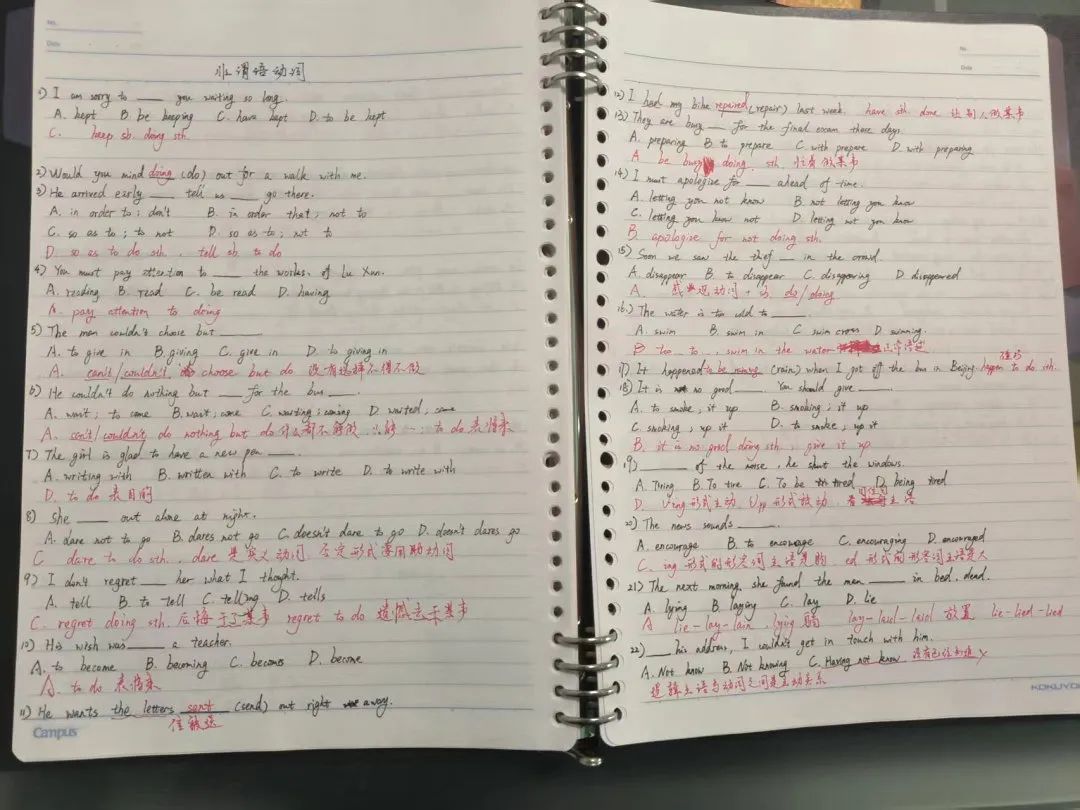 No.
Date
非谓语动词
1) I am sorry to ____ you waiting so long.
A. kept B. be keeping C. have kept D. to be kept
C. keep sb. doing sth.
2) Would you mind doing (do) out for a walk with me.
3) He arrived early ____ tell us ____ go there.
A. in order to; don't B. in order that; not to
C. so as to; to not D. so as to; not to
D. so as to do sth. , tell sb to do
4) You must pay attention to ____ the works, of Lu Xun.
A. reading B. read C. be read D. having
A. pay attention to doing
5) The man couldn't choose but ____.
A. to give in B. giving C. give in D. to giving in
A. can't/couldn't choose but do 没有选择不得不做
6) He couldn't do nothing but ____ for the bus ____.
A. wait; to come B. wait; come C. waiting; coming D. waited; came
A. can't/couldn't do nothing but do 什么都不能做 只能…; to do 表将来
7) The girl is glad to have a new pen ____.
A. writing with B. written with C. to write D. to write with
D. to do 表目的
8) she ____ out alone at night.
A. dare not to go B. dares not go C. doesn't dare to go D. doesn't dares go
C dare to do sth. , dare 是实义动词 否定形式要用助动词
9) I don't regret ____ her what I thought.
A. tell B. to tell C. telling D. tells
C. regret doing sth. 后悔干了某事 regret to do 遗憾去干某事
10) His wish was ____ a teacher.
A. to become B. becoming C. becomes D. become
A. to do 表将来
11) He wants the letters sent (send) out right away.
信被送
Campus
No.
Date
12) I had my bike repaired (repair) last week. have sth done 让别人做某事
13) They are busy ____ for the final exam these days.
A. preparing B. to prepare C. with prepare D. with preparing
A be busy doing sth 忙着做某事
14) I must apologize for ____ ahead of time.
A. letting you not know B. not letting you know
C. letting you know not D. letting not you know
B. apologize for not doing sth.
15) Soon we saw the thief ____ in the crowd.
A. disappear B. to disappear C. disappearing D. disappeared
A. 感官动词 + do/doing
16.) The water is too cold to ____.
A. swim B. swim in C swim cross D swimming.
B too … to … , swim in the water
17) It happened to be raining (rain) when I got off the bus in Beijing. happen to do sth.
碰巧
18) It is no good ____ You should give ____.
A. to smoke; it up B. smoking; it up
C. smoking; up it D. to smoke; up it
B. it is no good doing sth. , give it up
19) ____ of the noise, he shut the windows.
A. Tiring B. To tire C. To be tired D. being tired
D. Ving 形式主动 Vpp 形式被动. 看主语
20) The news sounds ____.
A. encourage B. to encourage C. encouraging D. encouraged
C. ing 形式的形容词主语是物 ed 形式的形容词主语是人
21) The next morning, she found the man ____ in bed, dead.
A. lying B. laying C. lay D. lie
A lie-lay-lain. lying 躺 lay-laid-laid 放置 lie-lied-lied
22) ____ his address, I couldn't get in touch with him.
A. Not know B. Not knowing C. Having not know 没有已经知道 X
逻辑主语与动词之间是主动关系
KOKUYO